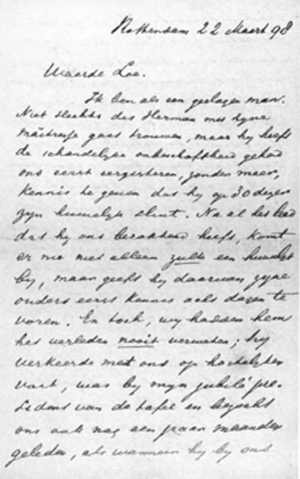 Rotterdam 22 Maart 98
Waarde Loe.
Ik ben als een geslagen man.
Niet slechts dat Herman met zyne
maîtresse gaat trouwen, maar hy heeft
de schandelyke onbeschaftheid gehad
ons eerst eergisteren, zonder meer,
kennis te geven dat hy op 30 dezer
zyn huwelyk sluit. Na al het leed
dat hy ons berokkend heeft, komt
er nu niet alleen zulk een huwelyk
by, maar geeft hy daarvan zyne
ouders eerst kennis acht dagen te
voren. En toch, wy hadden hem
het verleden nooit verweten; hy
verkeerde met ons op hartelyken
voet, was by myn jubelé pre-
sident van de tafel en bezocht
ons ook nog een paar maanden
geleden, als wanneer hy by ons